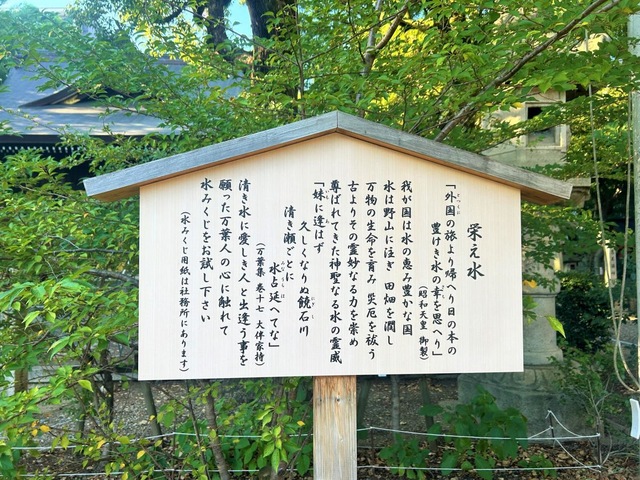 栄え水
「外国の旅より帰へり日の本の
豊けき水の幸を思へり」
(昭和天皇 御製)
我が国は水の恵み豊かな国
水は野山に注ぎ 田畑を潤し
万物の生命を育み 災厄を祓う
古よりその霊妙なる力を崇め
尊ばれてきた神聖なる水の霊威
「妹に逢はず
久しくなりぬ饒石川
清き瀬ごとに
水占延へてな」
(万葉集 巻十七 大伴家持)
清き水に愛しき人と出逢う事を
願った万葉人の心に触れて
水みくじをお試し下さい
(水みくじ用紙は社務所にあります)